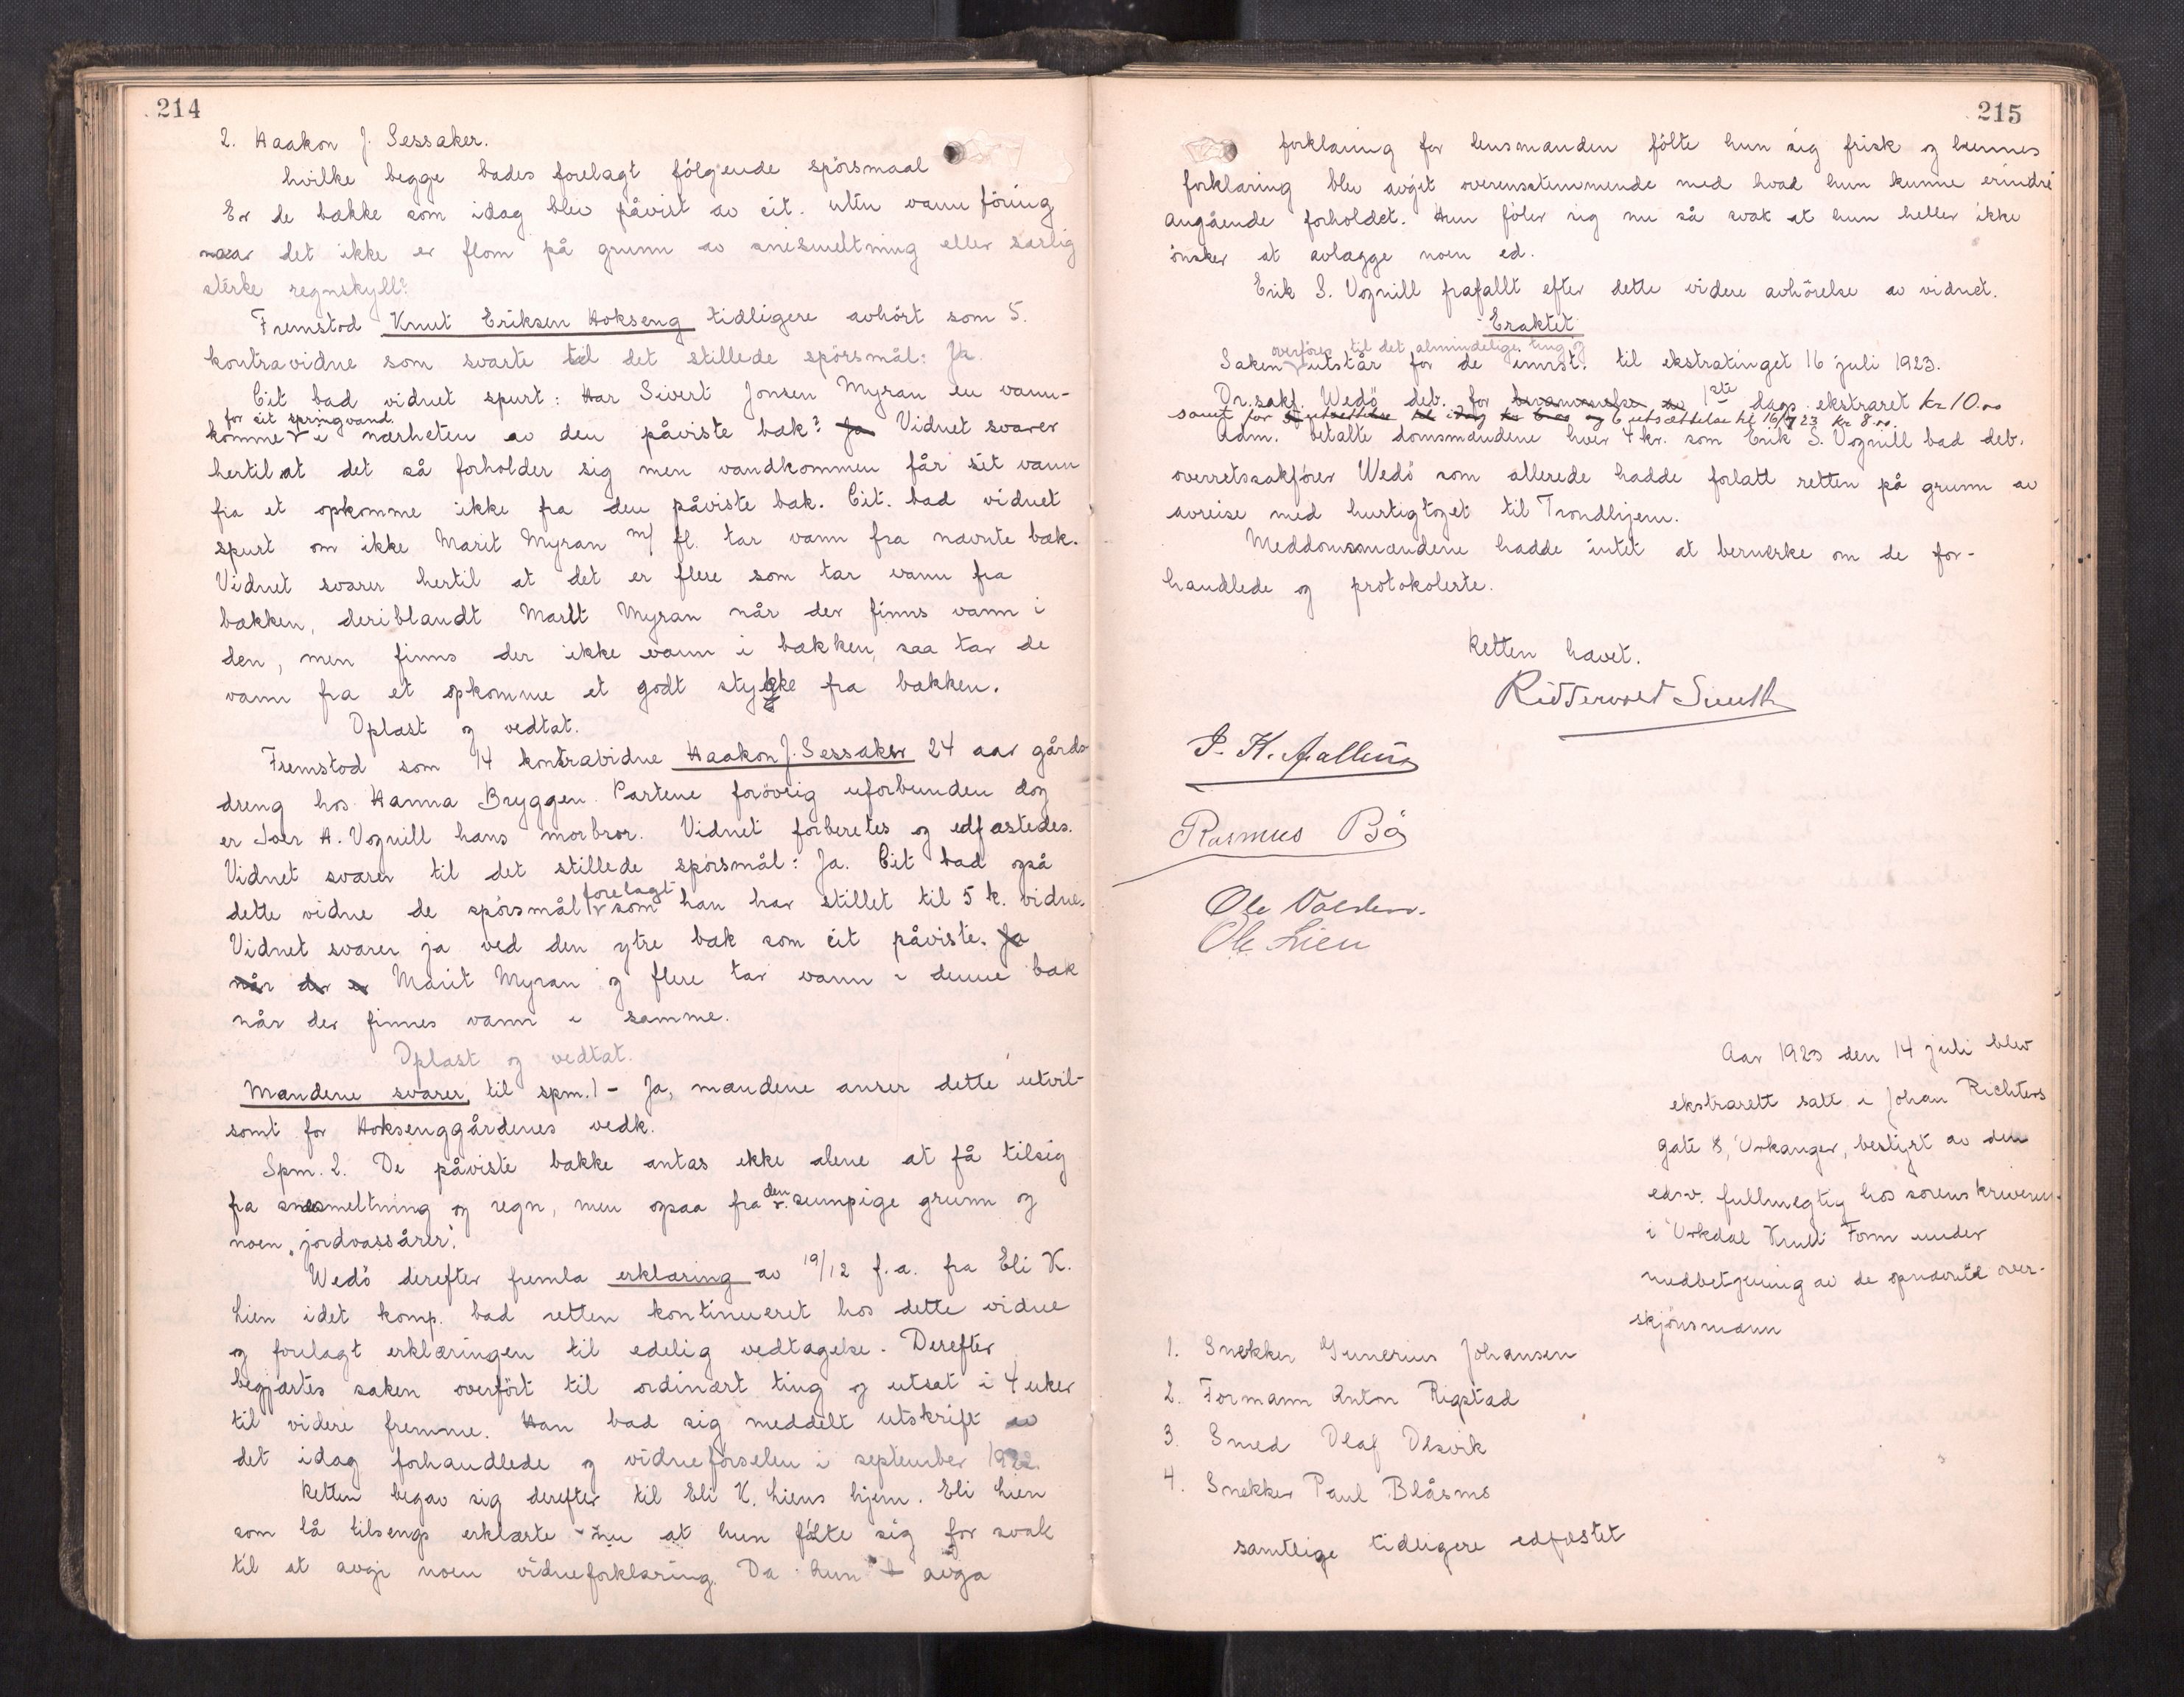 214
2. Haakon J. Sessaker.
hvilke begge bades forelagt følgende spörsmaal
Er de bække som idag blev påvist av cit. uten vann föring
naar det ikke er flom på grunn av snesmeltning eller særlig
sterke regnskyll?
Fremstod Knut Eriksen Hokseng tidligere avhört som 5.
kontravidne som svarte til det stillede spörsmål: Ja.
Cit bad vidnet spurt: Har Sivert Jonsen Myran en vann-
for sit springvand
komme i nærheten av den påviste bæk? Ja Vidnet svarer
hertil at det så forholder sig men vandkommen får sit vann
fra et opkomme ikke fra den påviste bæk. Cit. bad vidnet
spurt om ikke Marit Myran m/ fl. tar vann fra nævnte bæk.
Vidnet svarer hertil at det er flere som tar vann fra
bækken, deriblandt Marit Myran når der finns vann i
den, men finns der ikke vann i bækken, saa tar de
vann fra et opkomme et godt stykke fra bækken.
Oplæst og vedtat.
Fremstod som 14 kontravidne Haakon J. Sessaker 24 aar gårds-
dreng hos Hanna Bryggen. Partene forövrig uforbunden dog
er Joer A. Vognill hans morbror. Vidnet forberetes og edfæstedes.
Vidnet svarer til det stillede spörsmål: Ja. Cit bad også
forelagt
dette vidne de spörsmål som han har stillet til 5 k. vidne.
Vidnet svarer ja ved den ytre bæk som cit påviste. Ja
når der er Marit Myran og flere tar vann i denne bæk
når der finnes vann i samme.
Oplæst og vedtat.
Mændene svarer, til spm. 1 - Ja, mændene anser dette utvil-
somt for Hoksenggårdenes vedk.
Spm. 2. De påviste bække antas ikke alene at få tilsig
den
fra snesmeltning og regn, men ogsaa fra sumpige grunn og
noen "jordvassårer".
Wedö derefter fremla erklæring av 19/12 f.a. fra Eli K.
Lien idet komp. bad retten kontinueret hos dette vidne
og forelagt erklæringen til edelig vedtagelse. Derefter
begjærtes saken overfört til ordinært ting og utsat i 4 uker
til videre fremme. Han bad sig meddelt utskrift av
det idag forhandlede og vidneförselen i september 1922.
Retten begav sig derefter til Eli K. Liens hjem. Eli Lien
som lå tilsengs erklærte nu at hun fölte sig for svak
til at avgi noen vidneforklaring. Da hun avga
215
forklaring for lensmanden fölte hun sig frisk og hennes
forklaring blev avgit overensstemmende med hvad hun kunne erindre
angående forholdet. Hun föler sig nu så svak at hun heller ikke
önsker at avlægge noen ed.
Erik S. Vognill frafallt efter dette videre avhörelse av vidnet.
Eraktet
overföres til det almindelige ting og
Saken utstår for de innst. til ekstratinget 16 juli 1923.
Or.sakf. Wedö deb. for berammelse av 1ste dags ekstraret Kr 10.00
samt for utsættelse til idag kr 6.00 og utsættelse til 16/7 23 kr 8.00.
Adm. betalte domsmændene hver 4 kr. som Erik S. Vognill bad deb.
overretssakförer Wedö som allerede hadde forlatt retten på grunn av
avreise med hurtigtoget til Trondhjem.
Meddomsmændene hadde intet at bemerke om de for-
handlede og protokolerte.
Retten hævet.
Riddervold Smith
Rasmus Bö
Ole Volden.
Ole Lien
Aar 1923 den 14 juli blev
ekstrarett satt i Johan Richters
gate 8, Orkanger, bestyrt av den
edsv. fullmegtig hos sorenskriveren
i Orkdal Knut Form under
medbetjening av de opnævnte over-
skjönsmænn
1. Snekker Gunerius Johansen
2. Formann Anton Rigstad
3. Smed Olaf Olsvik
4. Snekker Paul Blåsmo
samtlige tidligere edfæstet